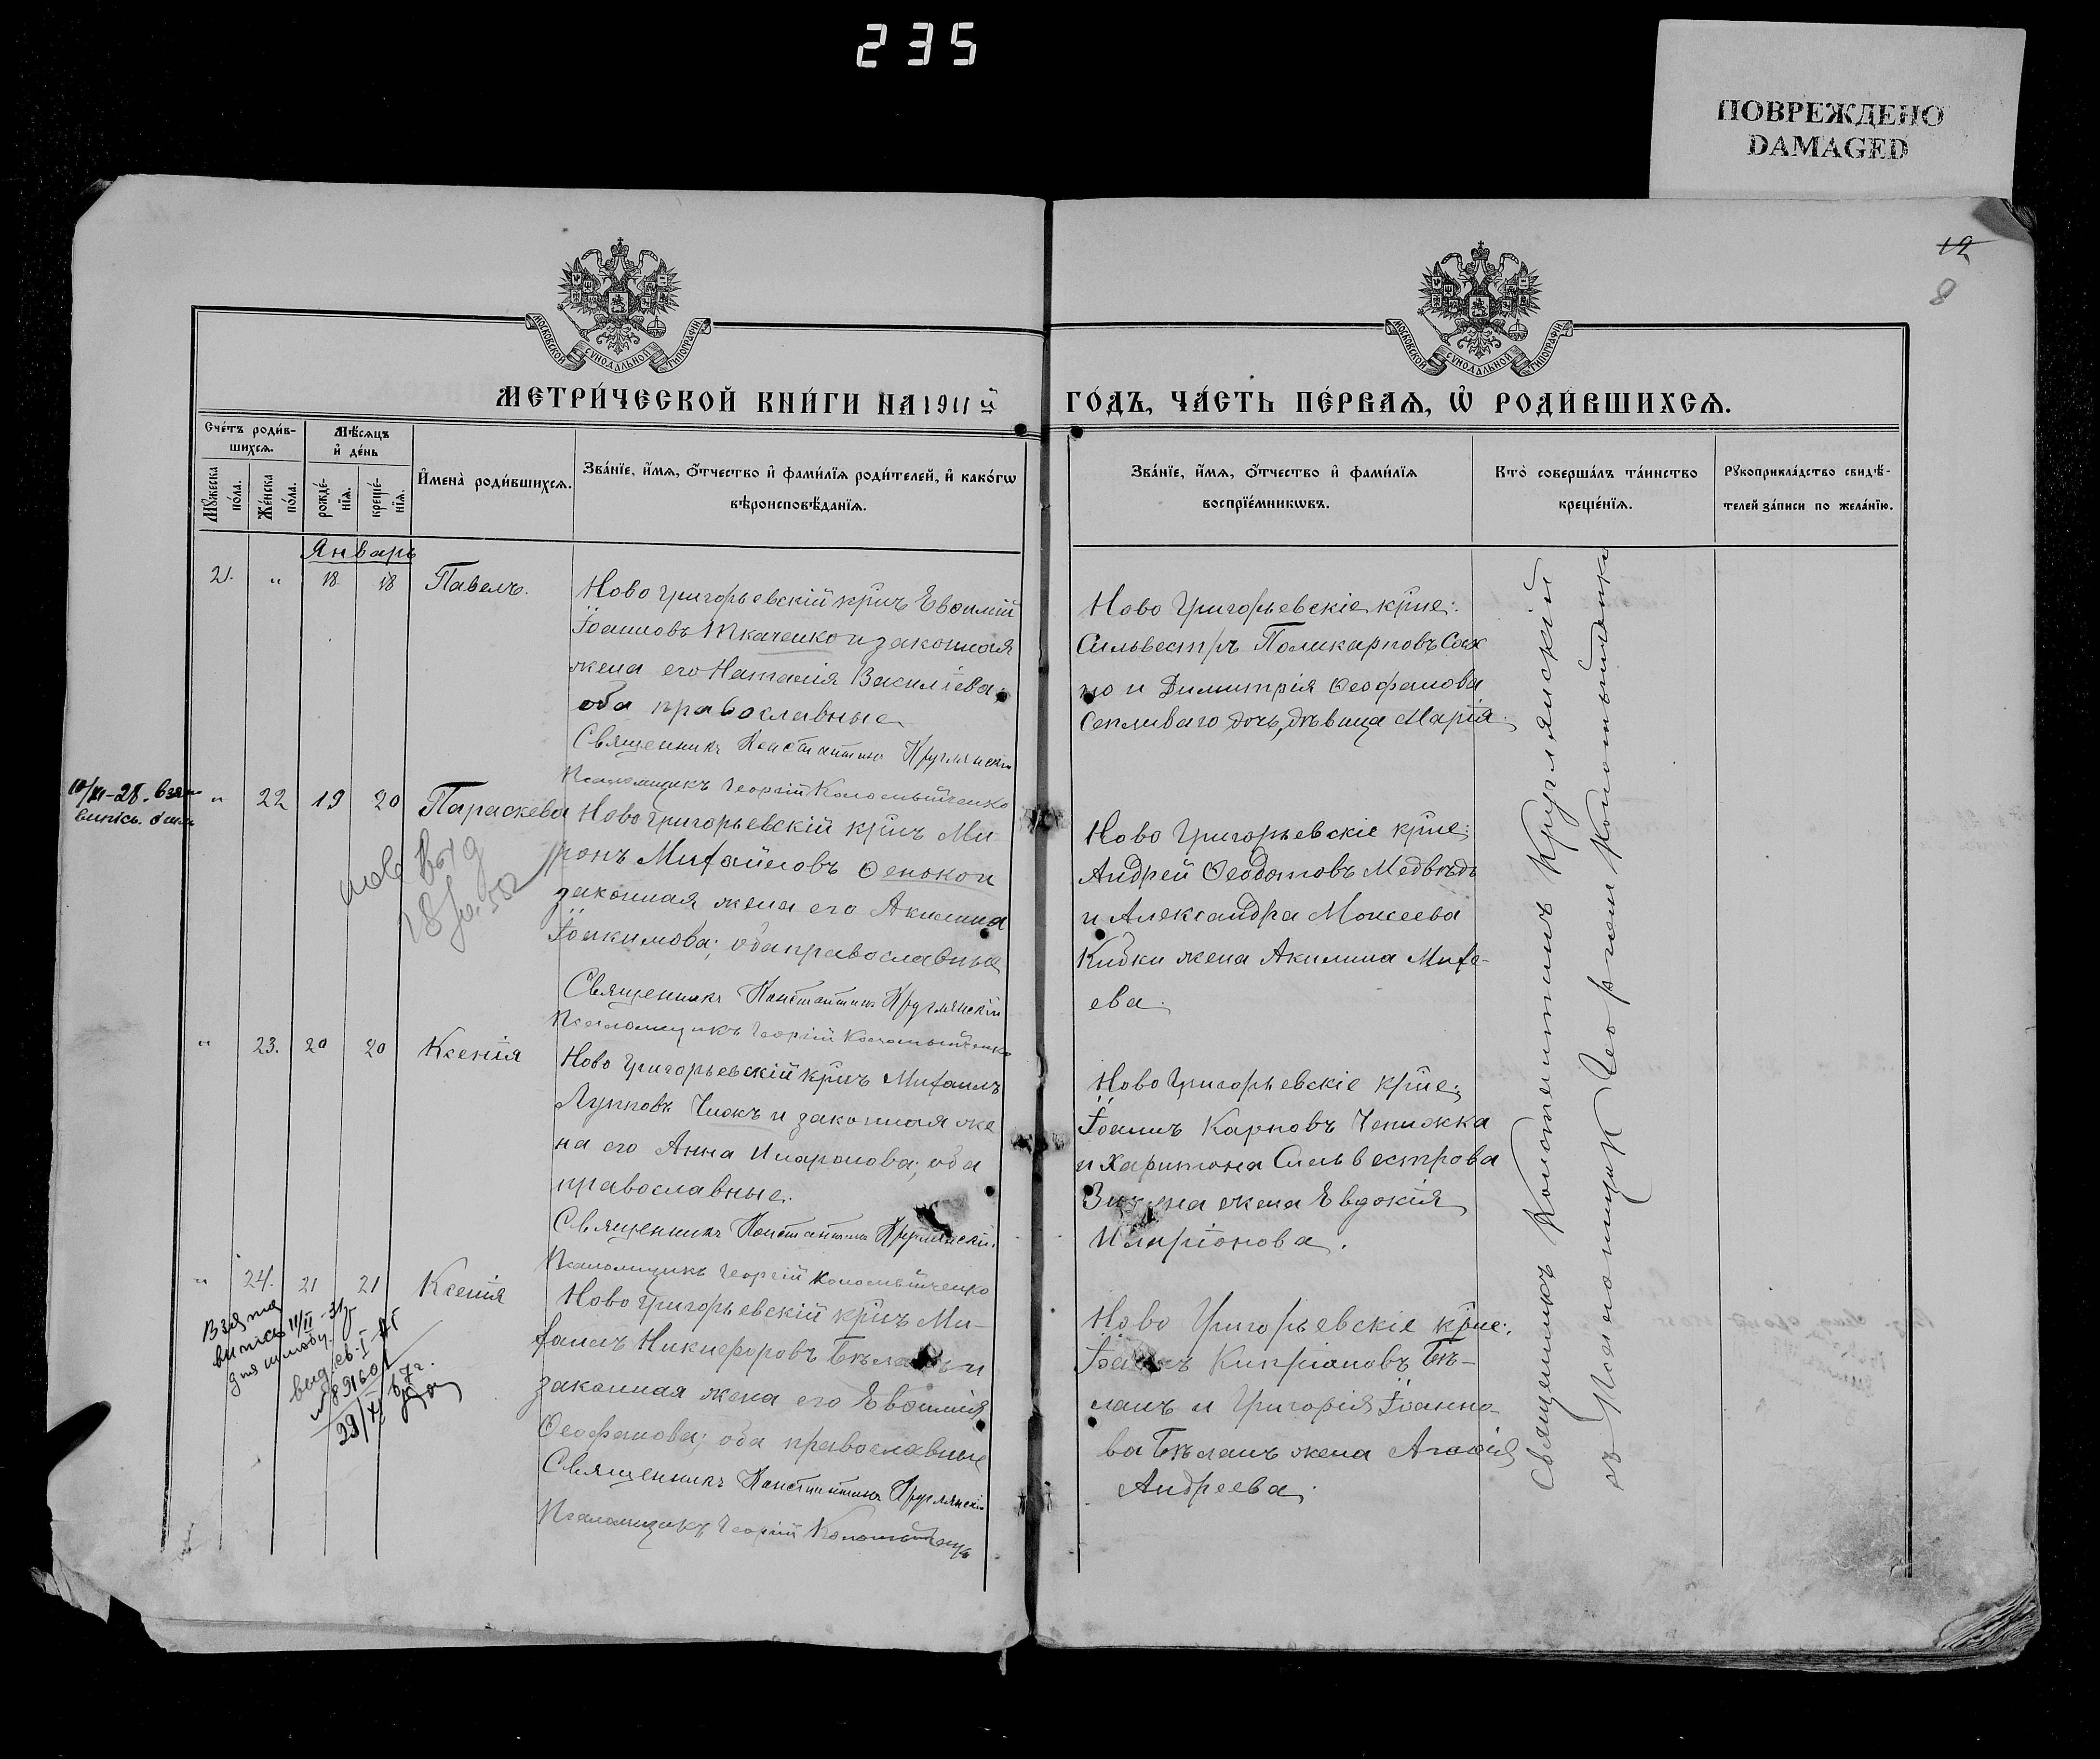 235
ПОВРЕЖДЕНО
DAMAGED
12
8
МОСКОВСКОЙ СУНОДАЛЬНОЙ ТИПОГРАФІИ
МОСКОВСКОЙ СУНОДАЛЬНОЙ ТИПОГРАФІИ
МЕТРИ́ЧЕСКОЙ КНИ́ГИ НА 1911 й
ГО́ДЪ, ЧА́СТЬ ПЕ́РВАѦ, Ѡ҆ РОДИ́ВШИХСѦ.
Сче́тъ роди́в-
шихсѧ.
Мѣ́сѧцъ
и҆ де́нь
Мꙋ́жеска
по́ла.
Же́нска
по́ла.
рожде́-
нїѧ.
креще́-
нїѧ.
И҆мена̀ роди́вшихсѧ.
Зва́нїе, и҆́мѧ, ѻ҆́тчество и҆ фами́лїѧ роди́телей, и҆ како́гѡ
вѣроисповѣ́данїѧ.
Зва́нїе, и҆́мѧ, ѻ҆́тчество и҆ фами́лїѧ
воспрїе́мникѡвъ.
Кто̀ соверша́лъ та́инство
креще́нїѧ.
Рꙋкоприкла́дство свидѣ́-
телей за́писи по жела́нїю.
Январь
21. " 18 18 Павелъ.
Ново Григорьевскій крнъ Евѳимій
Іоанновъ Ткаченко и законная
жена его Наталія Василіева;
оба православные
Священникъ Константинъ Круглянскій
Псаломщикъ Георгій Коломыйченко
Ново Григорьевскіе крне:
Сильвестръ Поликарповъ Сах
но и Димитрія Ѳеофанова
Сепливаго дочь, дѣвица Марія.
10/XI-28. взят
випись.
" 22 19 20 Параскева
Ново Григорьевскій крнъ Ми-
ронъ Михайловъ Ѳенокои
законная жена его Акилина
Іоакимова; оба православные
Священникъ Константинъ Круглянскій
Псаломщикъ Георгій Коломыйченко
Ново Григорьевскіе крне:
Андрей Ѳеодотовъ Медвѣдь
и Александра Моисеева
Кибки жена Акилина Михе-
ева.
" 23. 20 20 Ксенія
Ново Григорьевскій крнъ Михаилъ
Лупповъ Чиокъ и законная же
на его Анна Иларіонова; оба
православные.
Священникъ Константинъ Круглянскій
Псаломщикъ Георгій Коломыйченко
Ново Григорьевскіе крне;
Іоаннъ Карповъ Чепижка
и Харитона Сильвестрова
жена Евдокія
Иларіонова.
" 24. 21 21 Ксенія
Взята
випись 11/II-31
для шлюбу.
вид. св. I-АГ
29/XI 67г.
Ново Григорьевскій крнъ Ми-
хаилъ Никифоровъ Бѣланъ и
законная жена его Евѳимія
Ѳеофанова; оба православные
Священникъ Константинъ Круглянскій
Псаломщикъ Георгій Коломыйченко
Ново Григорьевскіе крне:
Іоаннъ Кипріановъ Бѣ-
ланъ и Григорія Іоанно-
ва Бѣланъ жена Агаѳія
Андреева.
Священникъ Константинъ Круглянскій
съ Псаломщик Георгіем Коломыйченко